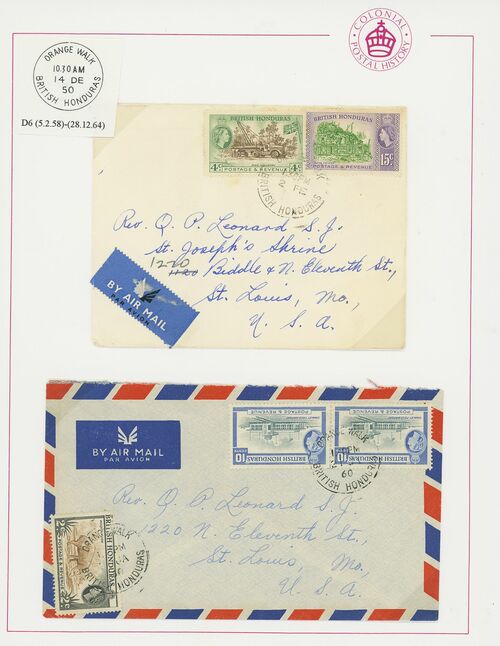 COLONIAL
POSTAL HISTORY
ORANGE WALK
10.30 AM
14 DE
50
BRITISH HONDURAS
D6 (5.2.58)-(28.12.64)
BRITISH HONDURAS
4c 4c
POSTAGE & REVENUE
BRITISH HONDURAS
15c
POSTAGE & REVENUE
PM
2 FE
BRITISH HONDURAS
Rev. Q. P. Leonard S.J.
St. Joseph's Shrine
1220
1120 Biddle & N. Eleventh St.,
St. Louis, Mo.,
U. S. A.
BY AIR MAIL
PAR AVION
BY AIR MAIL
PAR AVION
POSTAGE & REVENUE
BRITISH HONDURAS
10
POSTAGE & REVENUE
BRITISH HONDURAS
10
ORANGE WALK
PM
60
BRITISH HONDURAS
Rev. Q. P. Leonard S.J.
1220 N. Eleventh St.,
St. Louis, Mo.,
U. S. A.
BRITISH HONDURAS
POSTAGE & REVENUE
2c 2c
ORANGE WALK
PM
HONDURAS